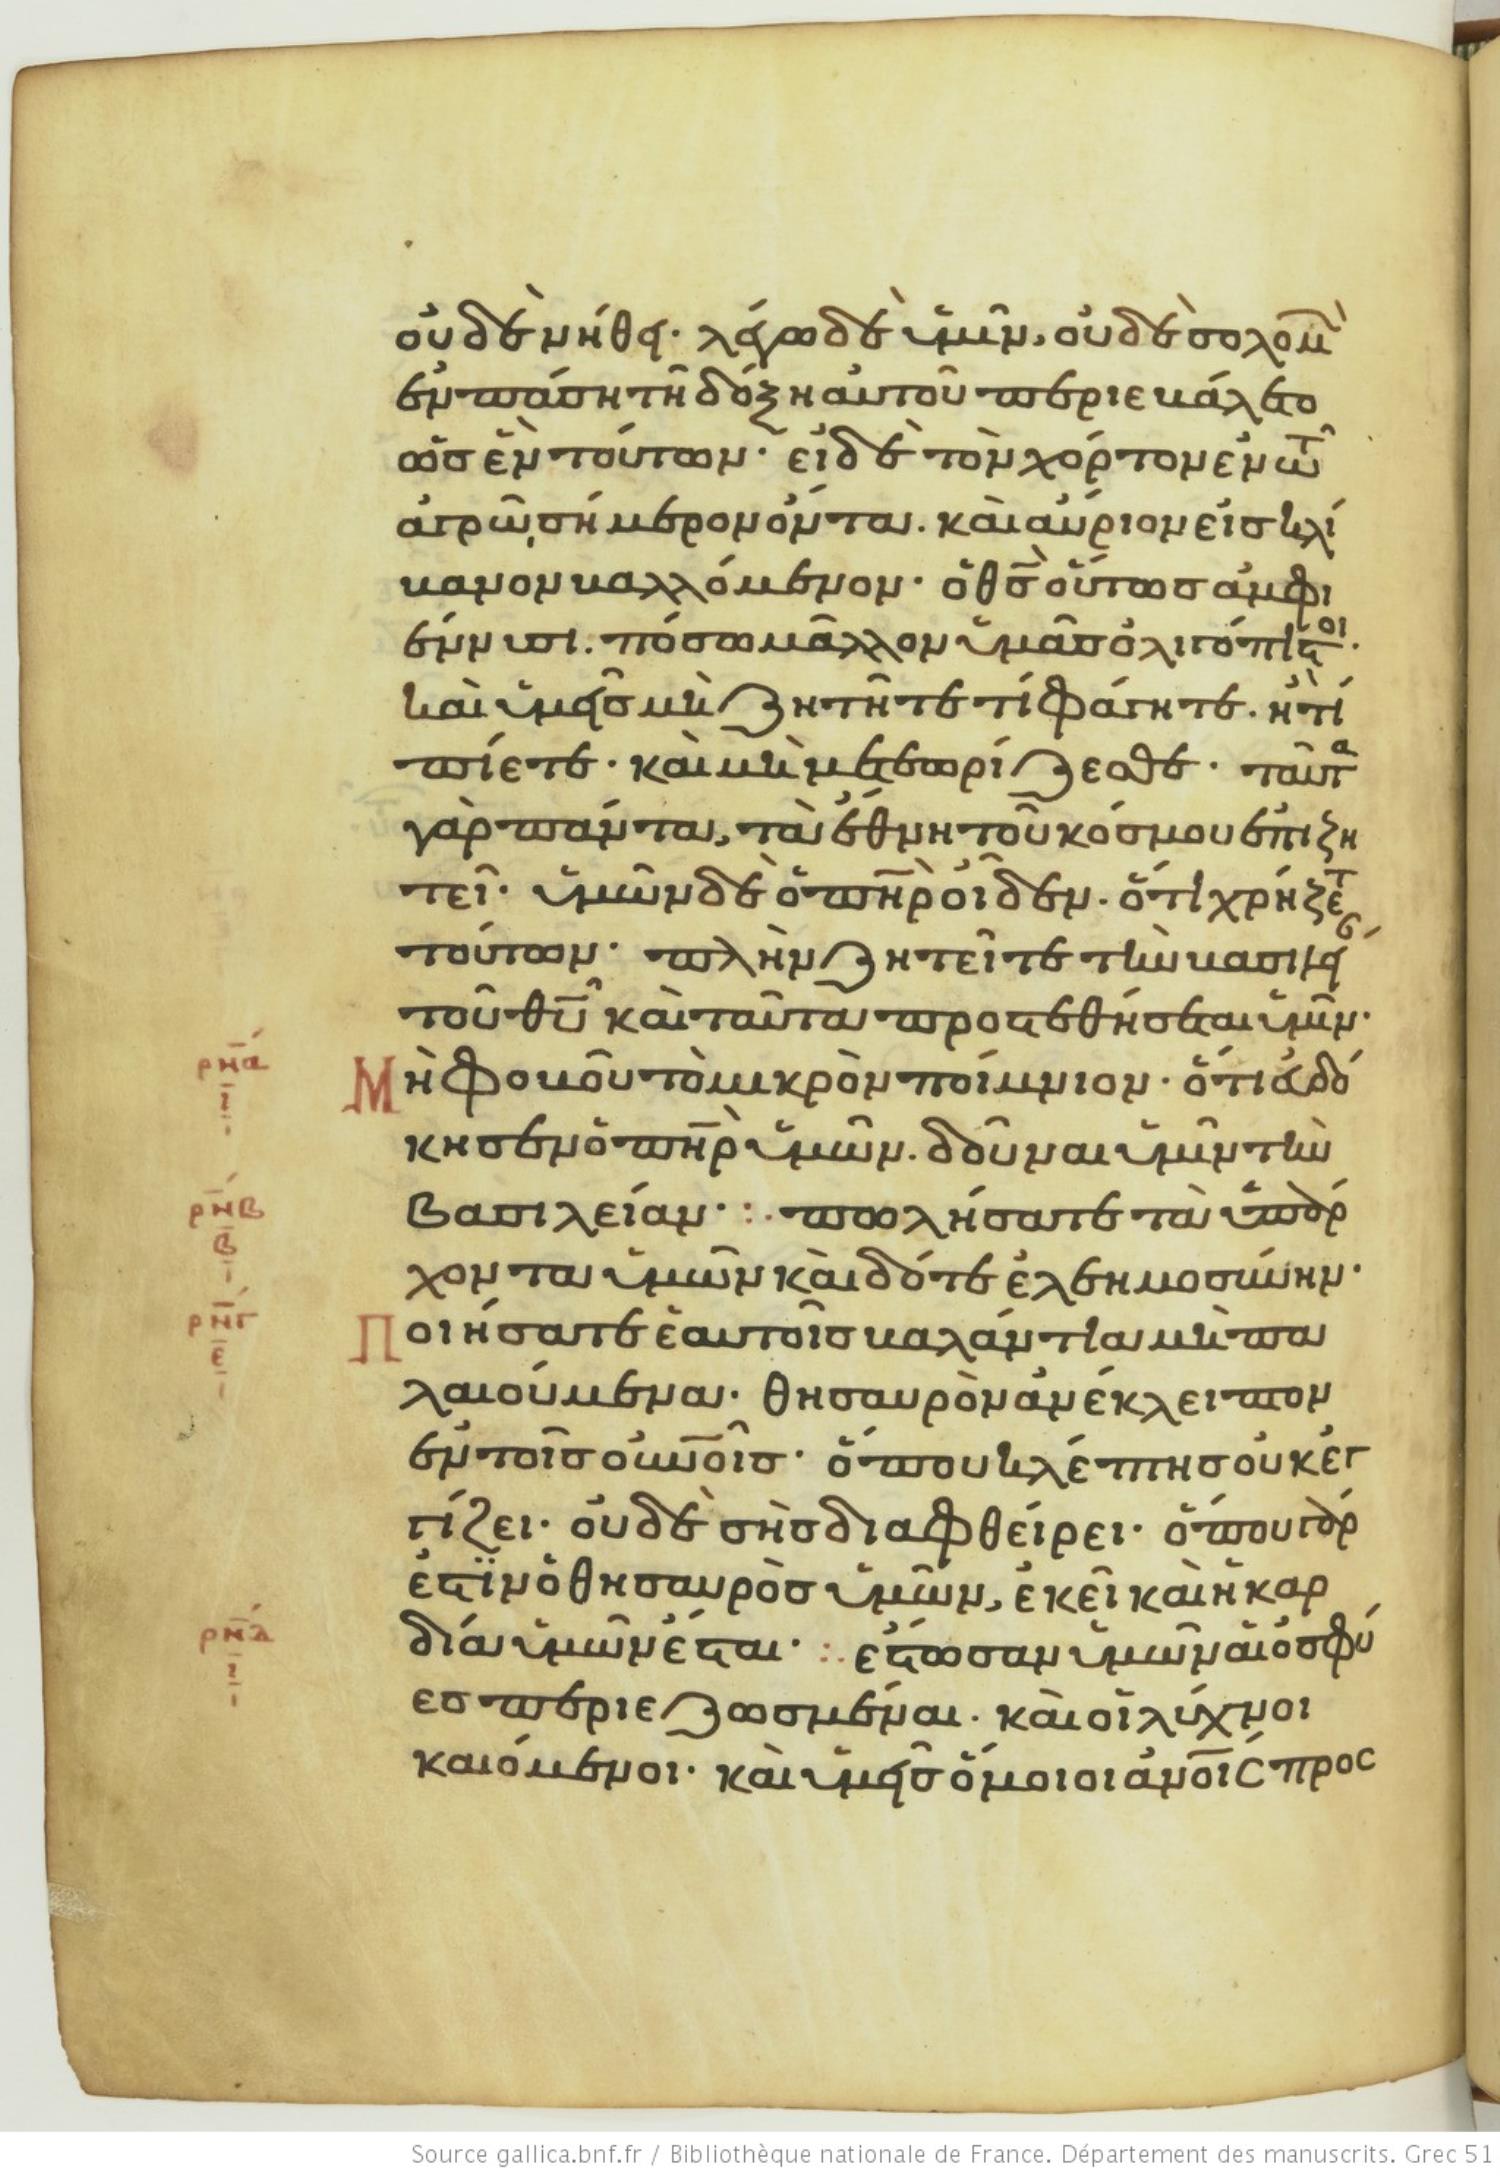 οὐδὲ νήθει· λέγω δὲ ὑμῖν, οὐδὲ σολομ̅
ἐν πάσῃ τῇ δόξῃ αὐτοῦ περιεβάλετο
ὡς ἓν τούτων· εἰ δὲ τὸν χόρτον ἐν τῶ
ἀγρῶ, σήμερον ὄντα. καὶ αὔριον εἰς κλί
βανον βαλλόμενον· ὁ θς̅ οὕτως ἀμφι
έννυσι. πόσω μᾶλλον ὑμᾶς ὀλιγόπιστοι.
καὶ ὑμεῖς μὴ ζητῆτε τί φάγητε. ἢ τί
πίετε· καὶ μὴ μετεωρίζεσθε· ταῦτα
γὰρ πάντα, τὰ ἔθνη τοῦ κόσμου ἐπιζη
τεῖ· ὑμῶν δὲ ὁ πη̅ρ οἶδεν. ὅτι χρήζετε
τούτων· πλὴν ζητεῖτε τὴν βασιλεί
τοῦ θυ̅ καὶ ταῦτα προστεθήσεται ὑμῖν·
ρν̅α
ι
Μὴ φοβοῦ τὸ μικρὸν ποίμνιον· ὅτι εὐδό
κησεν ὁ πη̅ρ ὑμῶν. δοῦναι ὑμῖν τὴν
ρν̅β
β
βασιλείαν· :· πωλήσατε τὰ ὑπάρ
χοντα ὑμῶν καὶ δότε ἐλεημοσύνην·
ρν̅γ
ε
Ποιήσατε ἑαυτοῖς βαλάντια μὴ πα
λαιούμενα· θησαυρὸν ἀνέκλειπτον
ἐν τοῖς οὐνο̅ῖς· ὅπου κλέπτης οὐκ ἐγ
γίζει· οὐδὲ σὴς διαφθείρει· ὅπου γάρ
ἐστϊν ὁ θησαυρὸς ὑμῶν, ἐκεῖ καὶ ἡ καρ
ρν̅δ
ι
δία ὑμῶν ἔσται· :· ἔστωσαν ὑμῶν αἱ ὀσφύ
ες περιεζωσμέναι. καὶ οἱ λύχνοι
καιόμενοι· καὶ ὑμεῖς ὅμοιοι ἀνο̅ις προς
Source gallica.bnf.fr / Bibliothèque nationale de France. Département des manuscrits. Grec 51